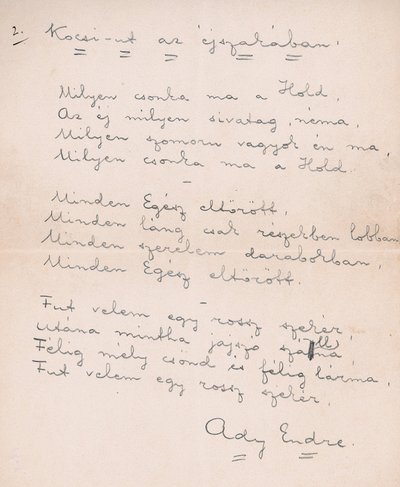 2.
Kocsi-ut az éjszakában.
Milyen csonka ma a Hold,
Az éj milyen sivatag, néma,
Milyen szomoru vagyok én ma,
Milyen csonka ma a Hold.
Minden Egész eltörött,
Minden láng csak részekben lobban,
Minden szerelem darabokban,
Minden Egész eltörött.
Fut velem egy rossz szekér,
Utána mintha jajszó szállna,
Félig mély csönd és félig lárma,
Fut velem egy rossz szekér.
Ady Endre.